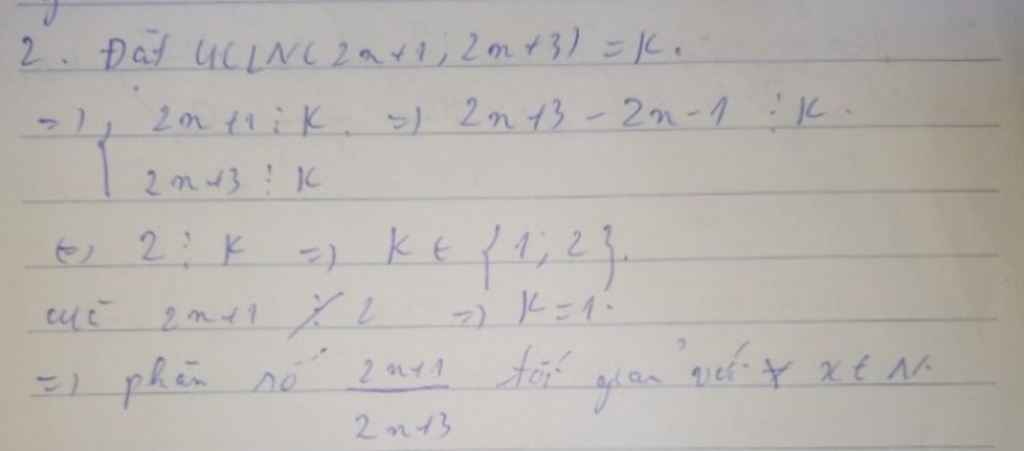 2. Đặt ƯCLN(2n+1; 2n+3) = K.
=> { 2n+1 ⋮ K. => 2n+3 - 2n-1 ⋮ K.
2n+3 ⋮ K
<=> 2 ⋮ K => K ∈ {1; 2}.
mà 2n+1 ⋮̸ 2 => K=1.
=> phân số \frac{2n+1}{2n+3} tối giản với ∀ x ∈ N.